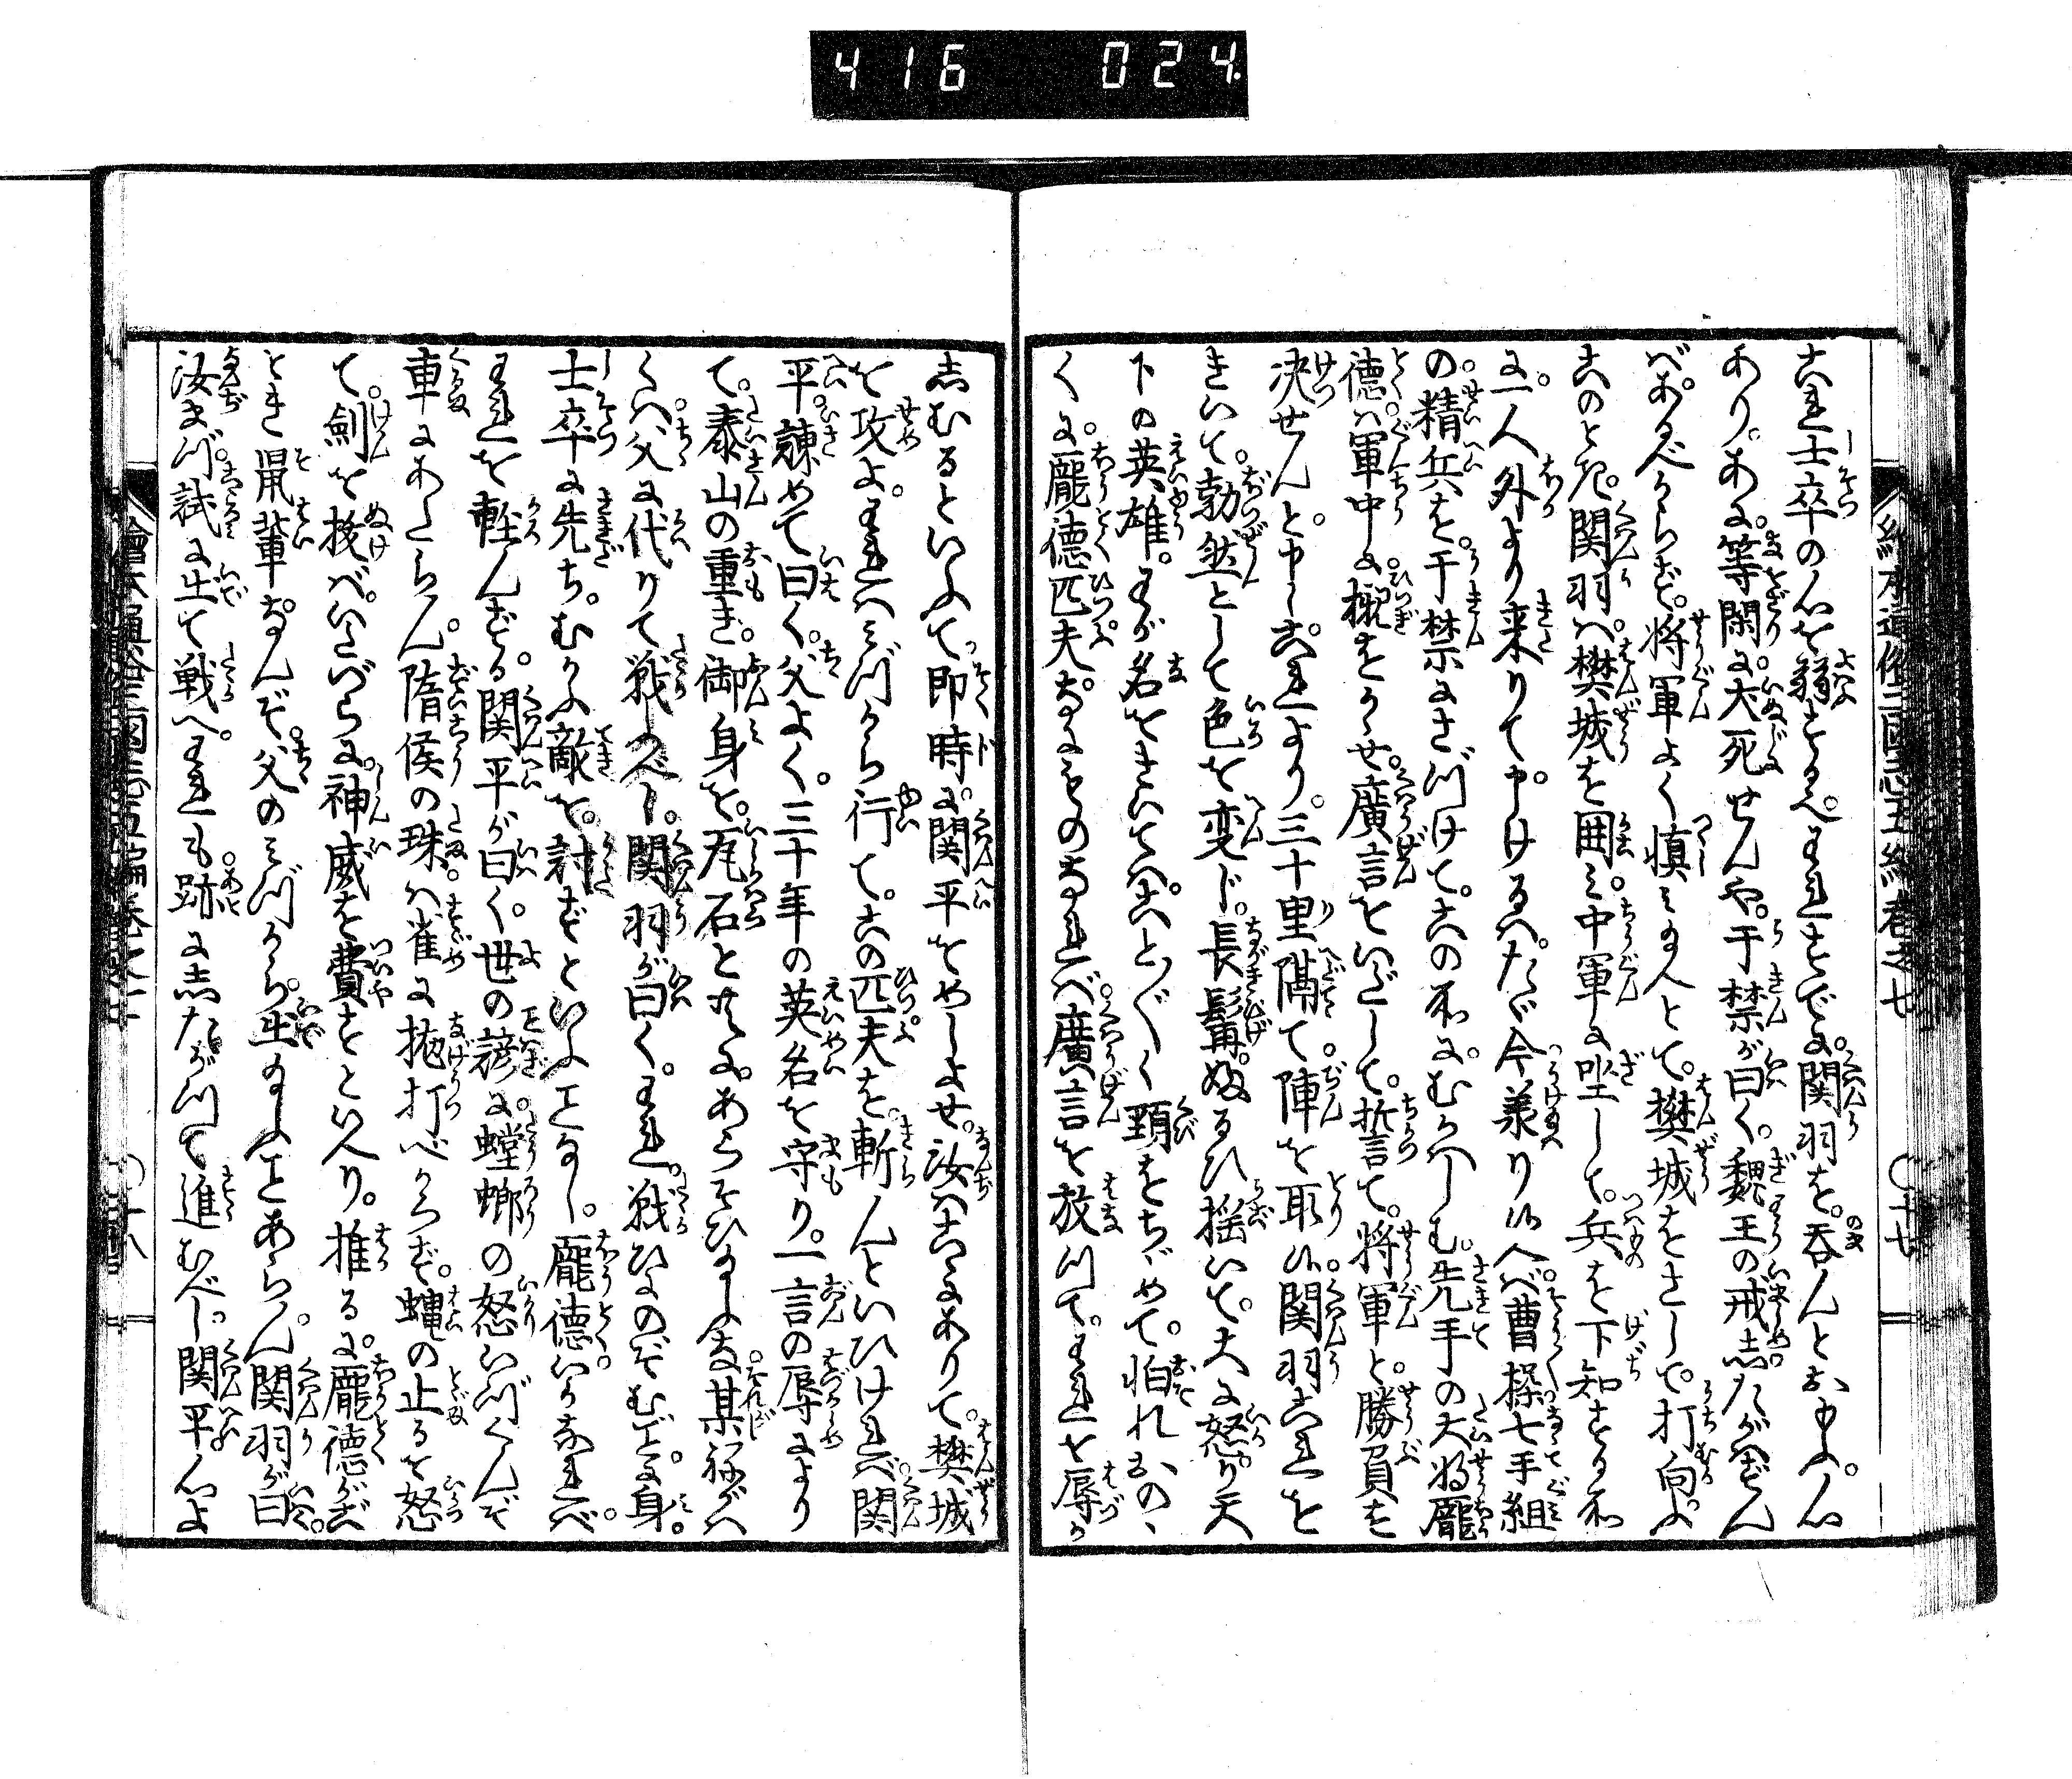 416 024.
これ士卒の心を弱とるべ。それすでに関羽を。吞んとおもふ。心
あり。あに等閑に犬死せんや。于禁が曰く。魏王の戒したがはずん
ばあるべからず。将軍よく慎み給人とて。樊城をさして打向ふ
このとき。関羽ハ樊城を囲み中軍に坐して。兵を下知する所
に。一人外より来りて申けるハ。たゞ今承り候へバ。曹操七手組
の精兵を。于禁にさづけて。この所にむかハしむ。先手の大将龐
徳ハ軍中に。櫬をかゝせ。廣言をいだして。誓て。将軍と。勝負を
决せんと申し。これより。三十里隔て陣を取候。関羽これを
きいて。勃然として色を変じ。長髯ふるひ揺いて。大に怒り。天
下の英雄。わが名をきいてハ。こと〴〵く頸をちゞめて。怕れおのゝ
く に。龐徳匹夫。なにものなれバ廣言を放つて。われを辱か
しむるといふて。即時に。関平をめしよせ。汝ハこゝにありて。樊城
を攻よ。われハみづから行て。この匹夫を。斬んといひけれバ関
平。諫めて曰く。父よく。三十年の英名を守り。一言の辱により
て。泰山の重き。御身を。瓦石とともに。あらそひ給ふな。某ねがハ
くハ父に代りて戦ふべし。関羽が曰く。われ。戦ひにのぞむごとに。身。
士卒に先ち。むかふ敵を。討ずといふことなし。龐徳いかなれバ。
われを軽んずる。関平が曰く。世の諺に。螳螂の怒いづくんぞ
車にあたらん。隋侯の珠ハ雀に抛打べからず。蝿の止るを怒
て。劍を拔バ。いたづらに。神威を費すといへり。推るに。龐徳がごと
とき鼠輩なんぞ。父のみづから。出給ふことあらん。関羽が曰
汝まづ。試に出て戦へ。われも跡にしたがつて進むべし。関平心よ
繪本通俗三國志五編巻之七
〇十七
〇十八